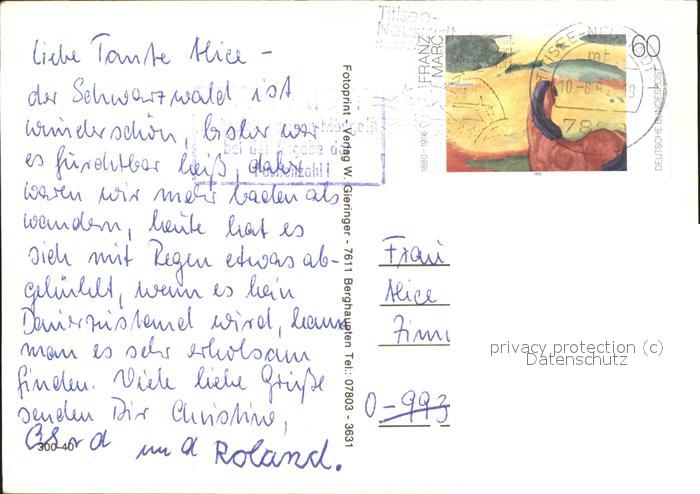 liebe Tante Alice –
der Schwarzwald ist
wunderschön, bisher war
es fürchtbar heiß, daher
waren wir mehr baden als
wandern, heute hat es
sich mit Regen etwas ab-
gekühlt, wenn es kein
Dauerzustand wird, kann
man es sehr erholsam
finden. Viele liebe Grüße
senden Dir Christine,
und Roland.
300-40
Fotoprint - Verlag W. Gieringer - 7611 Berghaupten Tel.: 07803 - 3631
Titisee-
Neustadt
bei der Angabe der
FRANZ
MARC
1880-1916
60
DEUTSCHE BUNDESPOST
TITISEE-NEUSTADT
mt
10.-8.92
78
Frau
Alice
Zim
O-993
privacy protection (c)
Datenschutz